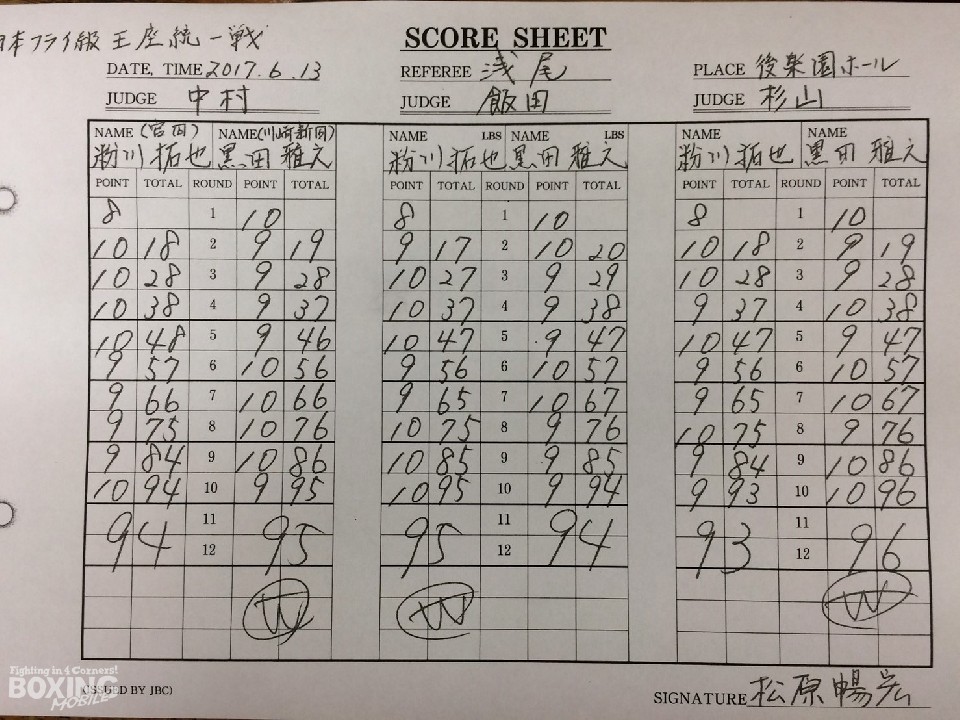 日本フライ級王座統一戦
SCORE SHEET
DATE, TIME 2017.6.13 REFEREE 浅尾 PLACE 後楽園ホール
JUDGE 中村 JUDGE 飯田 JUDGE 杉山
NAME (宮田) NAME (川崎新田) NAME LBS NAME LBS NAME NAME
粉川拓也 黒田雅之 粉川拓也 黒田雅之 粉川拓也 黒田雅之
POINT TOTAL ROUND POINT TOTAL POINT TOTAL ROUND POINT TOTAL POINT TOTAL ROUND POINT TOTAL
8 1 10 8 1 10 8 1 10
10 18 2 9 19 9 17 2 10 20 10 18 2 9 19
10 28 3 9 28 10 27 3 9 29 10 28 3 9 28
10 38 4 9 37 10 37 4 9 38 9 37 4 10 38
10 48 5 9 46 10 47 5 9 47 10 47 5 9 47
9 57 6 10 56 9 56 6 10 57 9 56 6 10 57
9 66 7 10 66 9 65 7 10 67 9 65 7 10 67
9 75 8 10 76 10 75 8 9 76 10 75 8 9 76
9 84 9 10 86 10 85 9 9 85 9 84 9 10 86
10 94 10 9 95 10 95 10 9 94 9 93 10 10 96
11 11 11
94 12 95 95 12 94 93 12 96
W W W
Fighting in 4 Corners!
BOXING
MOBILE
(ISSUED BY JBC)
SIGNATURE 松原暢宏